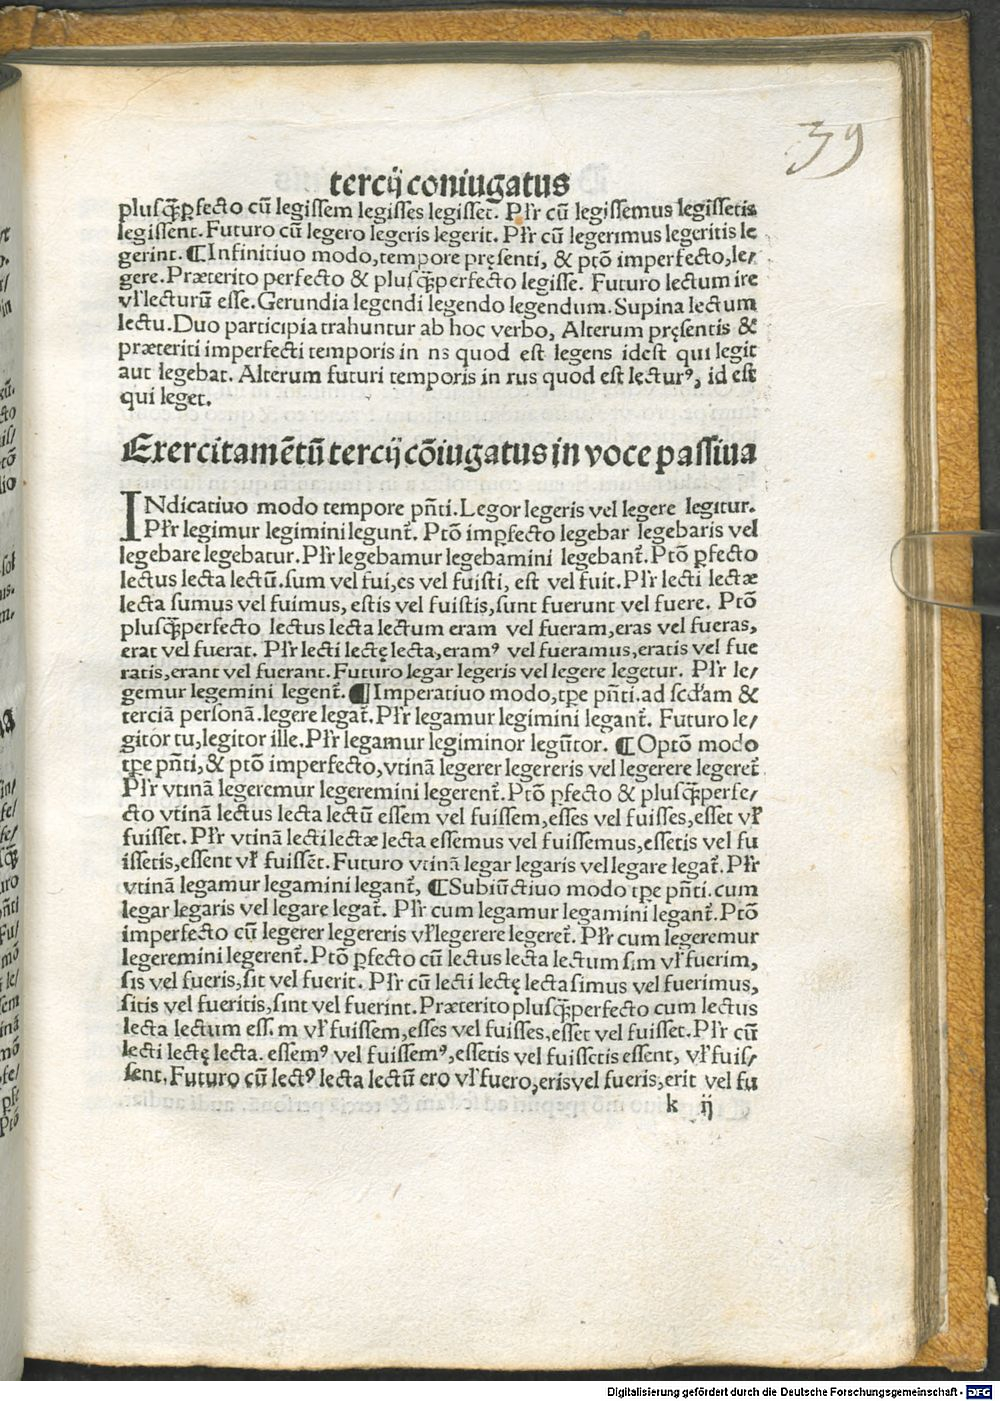 39
tercij coniugatus
plusq̃ꝑfecto cũ legissem legisses legisset. Pl̃r cũ legissemus legissetis
legissent. Futuro cũ legero legeris legerit. Pl̃r cũ legerimus legeritis le
gerint. ¶Infinitiuo modo, tempore pręsenti, & ptõ imperfecto, le/
gere. Præterito perfecto & plusq̃perfecto legisse. Futuro lectum ire
vl̃ lecturũ esse. Gerundia legendi legendo legendum. Supina lectum
lectu. Duo participia trahuntur ab hoc verbo, Alterum pręsentis &
præteriti imperfecti temporis in ns quod est legens idest qui legit
aut legebat. Alterum futuri temporis in rus quod est lecturꝰ, id est
qui leget.
Exercitamẽtũ tercij cõiugatus in voce passiua
INdicatiuo modo tempore pñti. Legor legeris vel legere legitur.
Pl̃r legimur legimini legunt̃. Ptõ imꝑfecto legebar legebaris vel
legebare legebatur. Pl̃r legebamur legebamini legebant̃. Ptõ ꝑfecto
lectus lecta lectũ. sum vel fui, es vel fuisti, est vel fuit. Pl̃r lecti lectæ
lecta sumus vel fuimus, estis vel fuistis, sunt fuerunt vel fuere. Ptõ
plusq̃perfecto lectus lecta lectum eram vel fueram, eras vel fueras,
erat vel fuerat. Pl̃r lecti lectę lecta, eramꝰ vel fueramus, eratis vel fue
ratis, erant vel fuerant. Futuro legar legeris vel legere legetur. Pl̃r le/
gemur legemini legent̃. ¶Imperatiuo modo, tꝑe pñti. ad scd̃am &
terciã personã. legere legat̃. Pl̃r legamur legimini legant̃. Futuro le/
gitor tu, legitor ille. Pl̃r legamur legiminor legũtor. ¶Optõ modo
tꝑe pñti, & ptõ imperfecto, vtinã legerer legereris vel legerere legeret̃
Pl̃r vtinã legeremur legeremini legerent̃. Ptõ ꝑfecto & plusq̃perfe/
cto vtinã lectus lecta lectũ essem vel fuissem, esses vel fuisses, esset vl̃
fuisset. Pl̃r vtinã lecti lectæ lecta essemus vel fuissemus, essetis vel fu
issetis, essent vl̃ fuissẽt. Futuro vtinã legar legaris vel legare legat̃. Pl̃r
vtinã legamur legamini legant̃, ¶Subiũctiuo modo tꝑe pñti. cum
legar legaris vel legare legat̃. Pl̃r cum legamur legamini legant̃. Ptõ
imperfecto cũ legerer legereris vl̃ legerere legeret̃. Pl̃r cum legeremur
legeremini legerent̃. Ptõ ꝑfecto cũ lectus lecta lectum sim vl̃ fuerim,
sis vel fueris, sit vel fuerit. Pl̃r cũ lecti lectę lecta simus vel fuerimus,
sitis vel fueritis, sint vel fuerint. Præterito plusq̃perfecto cum lectus
lecta lectum ess m vl̃ fuissem, esses vel fuisses, esset vel fuisset. Pl̃r cũ
lecti lectę lecta. essemꝰ vel fuissemꝰ, essetis vel fuissetis essent, vl̃ fuis/
sent. Futuro cũ lectꝰ lecta lectũ ero vl̃ fuero, eris vel fueris, erit vel fu
k ij
Digitalisierung gefördert durch die Deutsche Forschungsgemeinschaft - DFG